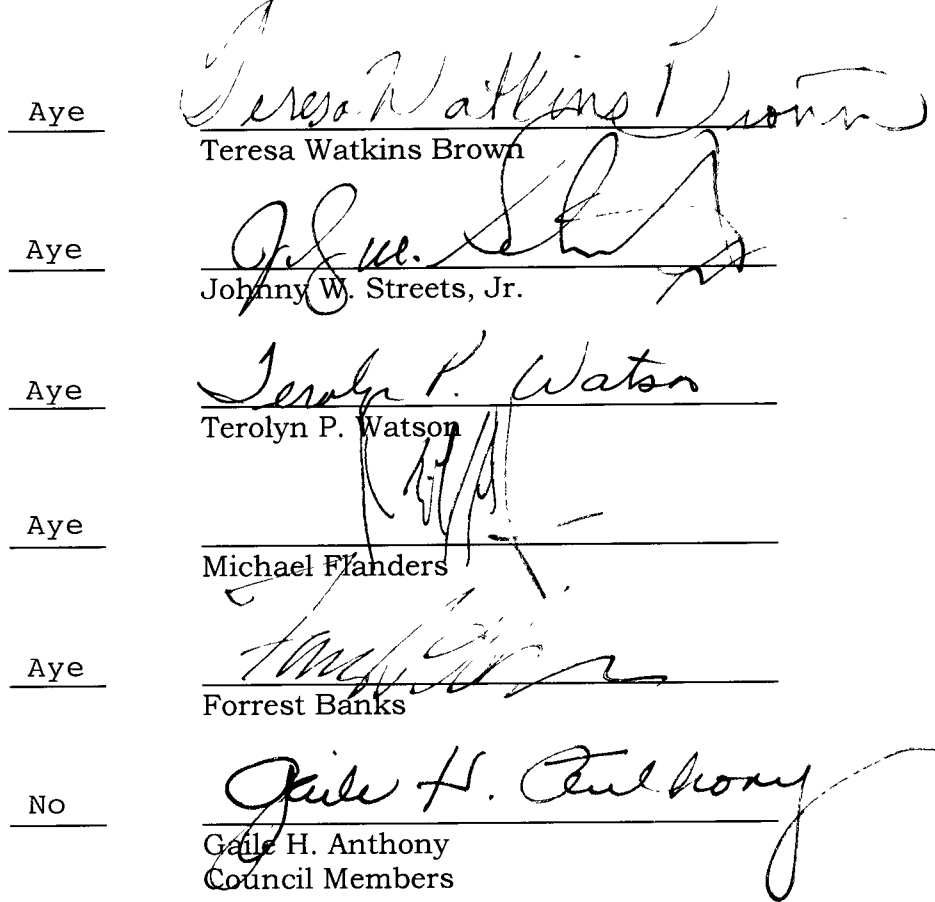 Aye Teresa Watkins Brown
Teresa Watkins Brown
Aye
Johnny W. Streets, Jr.
Aye Terolyn P. Watson
Terolyn P. Watson
Aye
Michael Flanders
Aye
Forrest Banks
No Gaile H. Anthony
Gaile H. Anthony
Council Members